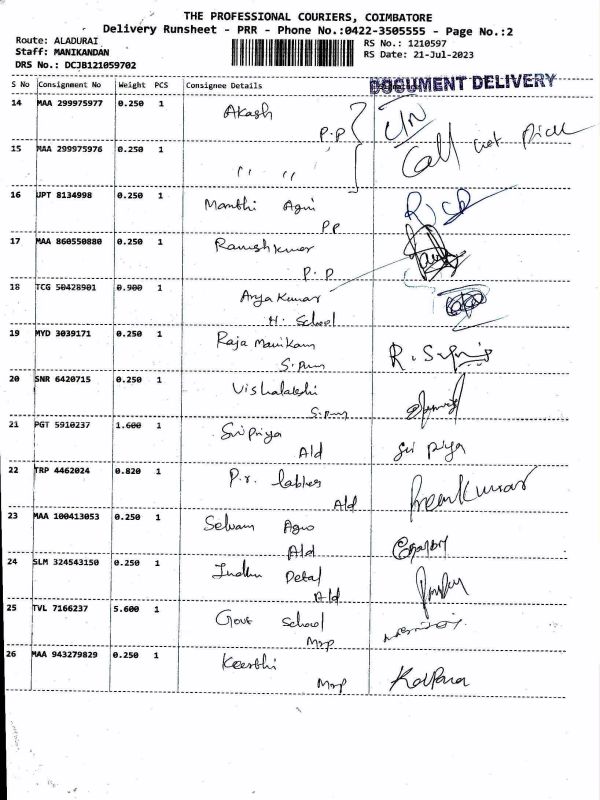 THE PROFESSIONAL COURIERS, COIMBATORE
Delivery Runsheet - PRR - Phone No.:0422-3505555 - Page No.:2
Route: ALADURAI
RS No.: 1210597
Staff: MANIKANDAN
RS Date: 21-Jul-2023
DRS No.: DCJB121059702
DOCUMENT DELIVERY
S No Consignment No Weight PCS Consignee Details
14 MAA 299975977 0.250 1 Akash
P.P
Call not Pick
15 MAA 299975976 0.250 1 " "
16 UPT 8134998 0.250 1
PP
17 MAA 860550880 0.250 1 Ramesh kumar
P.P
18 TCG 50428901 0.900 1 Arya Kumar
H. School
19 MYD 3039171 0.250 1 Raja Manikam
20 SNR 6420715 0.250 1 Vishalakshi
21 PGT 5910237 1.600 1 Sri Priya
Ald Sri Priya
22 TRP 4462024 0.820 1 P.r.
Ald Prem Kumar
23 MAA 100413053 0.250 1 Selvam Agro
Ald
24 SLM 324543150 0.250 1
Ald
25 TVL 7166237 5.600 1 Govt School
26 MAA 943279829 0.250 1 Keerthi
Kalpana